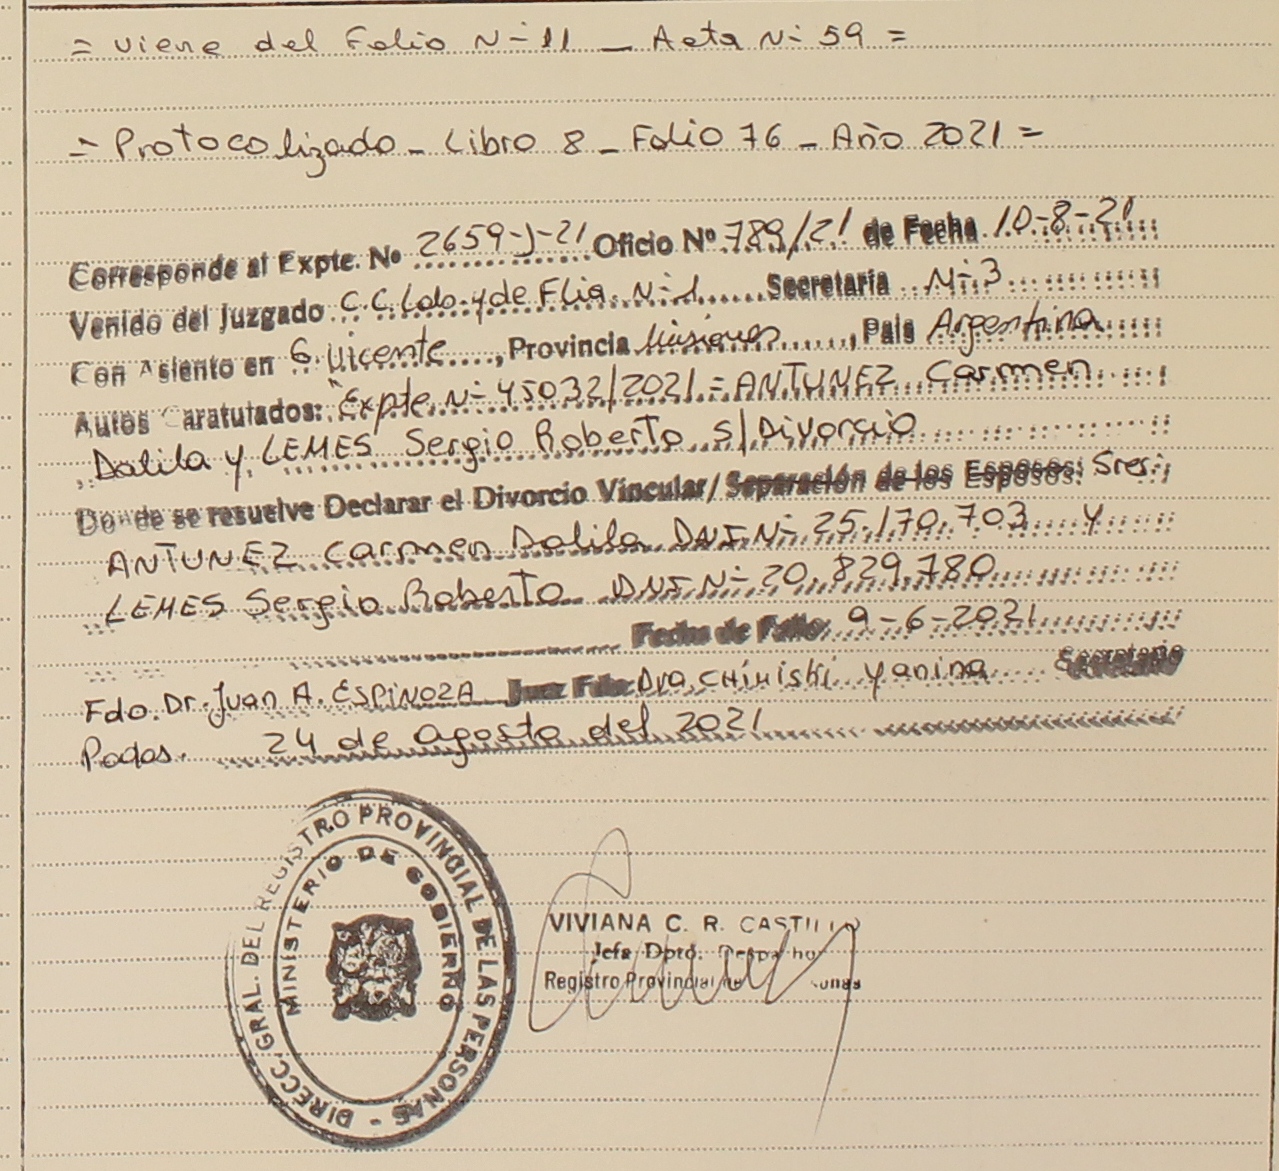 = viene del Folio N- 11 _ Acta N- 59 =
= Protocolizado _ Libro 8 _ Folio 76 _ Año 2021 =
Corresponde al Expte. Nº 2659-J-21 Oficio Nº 789/21 de Fecha 10-8-21
Venido del Juzgado C.C. Lab. y de Flia. N- 1 Secretaria N- 3
Con Asiento en S. Vicente, Provincia Misiones, Pais Argentina
Autos Caratulados: "Expte N- 45032/2021 = ANTUNEZ Carmen
Dalila y LEMES Sergio Roberto s/Divorcio
Donde se resuelve Declarar el Divorcio Vincular/ Separación de los Esposos: Sres.
ANTUNEZ Carmen Dalila DNI N- 25.170.703 y
LEMES Sergio Roberto DNI N- 20.829.780
Fecha de Fallo: 9-6-2021
Fdo. Dr. Juan A. ESPINOZA Juez Fdo: Dra CHIMISKI Yanina Secretario
Pdas. 24 de agosto del 2021
DIRECC. GRAL. DEL REGISTRO PROVINCIAL DE LAS PERSONAS -
MINISTERIO DE GOBIERNO
VIVIANA C. R. CASTILLO
Jefa Dpto. Despacho
Registro Provincial de Personas